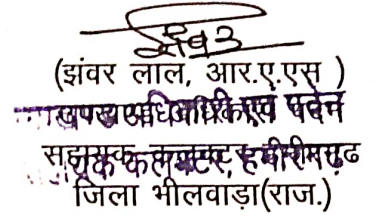 (झंवर लाल, आर.ए.एस )
उपखण्ड अधिकारी एवं पदेन
सहायक कलक्टर, हमीरगढ
जिला भीलवाड़ा(राज.)